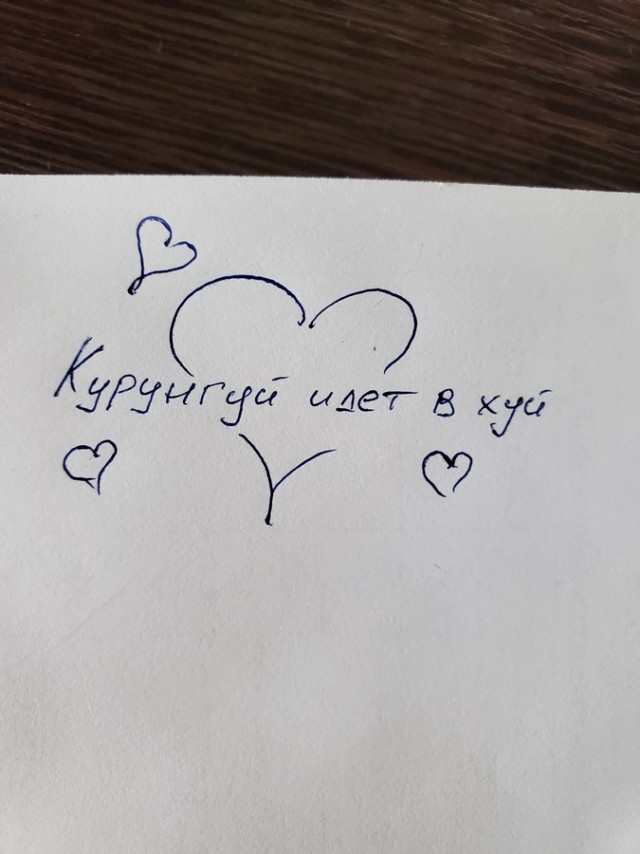 Курунгуй идет в хуй